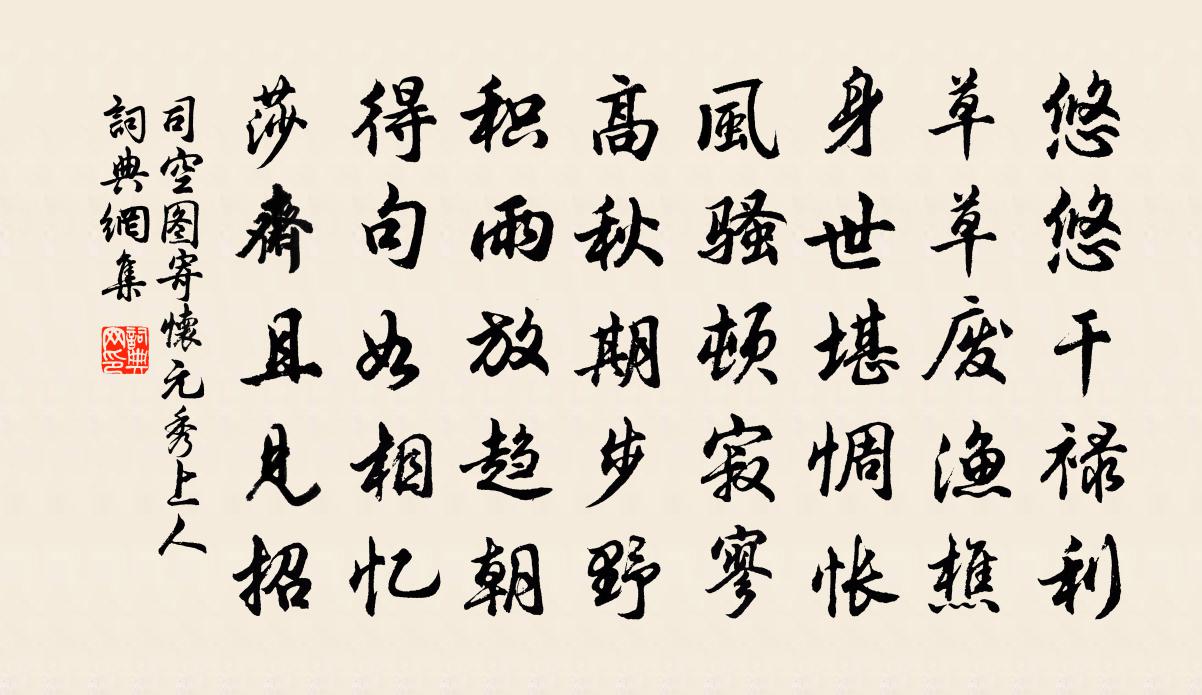 悠悠干禄利
草草废漁樵
身世堪惆怅
風骚顿寂寥
高秋期步野
积雨放趋朝
得句如相忆
莎齋且见招
司空图寄懷元秀上人
詞典網集
詞典网印